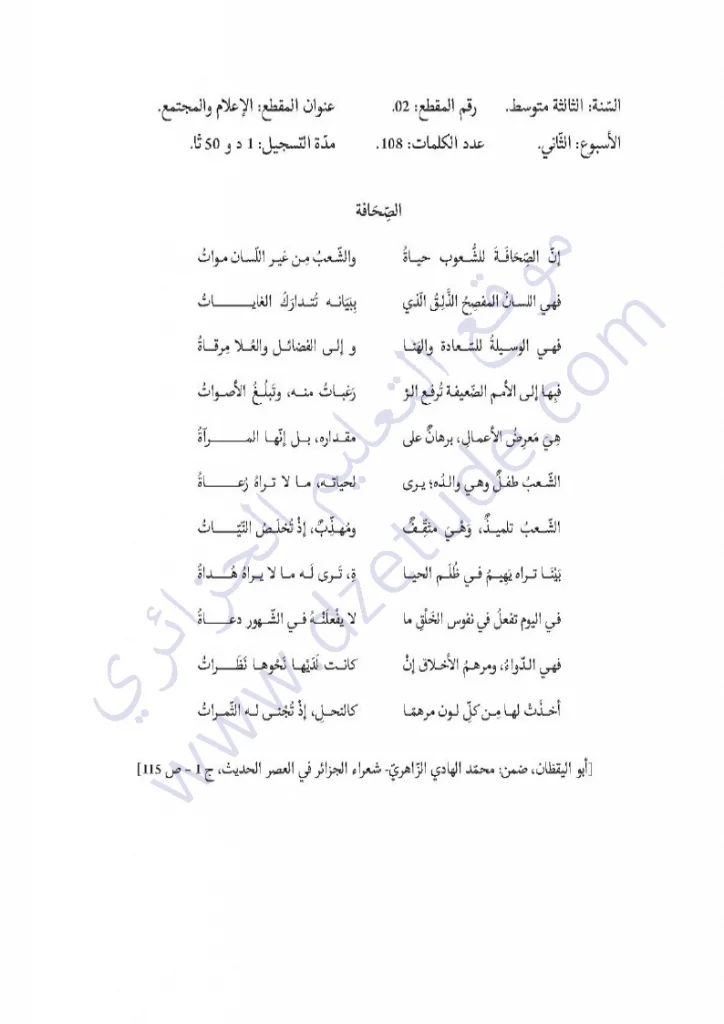 السّنة: الثالثة متوسط. رقم المقطع: 02. عنوان المقطع: الإعلام والمجتمع.
الأسبوع: الثّاني. عدد الكلمات: 108. مدّة التّسجيل: 1 د و 50 ثا.
الصِّحَافة
إنّ الصِّحَافَةَ للشُّعوب حياةُ والشّعبُ مِن غير اللّسان مواتُ
فهي اللسانُ المفصِحُ الذَّلِقُ الّذي بِبَيَانه تُتدارَكُ الغايـــاتُ
فهي الوسيلةُ للسّعادة والهَنَا و إلى الفضائل والعُلا مِرقاةُ
فبِها إلى الأمم الضّعيفة تُرفع الرَ رَغباتُ منه، وتَبلُغُ الأصواتُ
هِيَ مَعرِضُ الأعمالِ، برهانٌ على مقداره، بل إنّها المــرآةُ
الشّعبُ طفلٌ وهي والدُه؛ يرى لحياته، ما لا تراهُ رُعــاةُ
الشّعبُ تلميذٌ، وَهْيَ مثقِّفٌ ومُهذِّبٌ، إذْ تُخلَصُ النّيّــاتُ
بَيْنَا تراه يَهِيمُ في ظُلَم الحيا ةِ، تَرى لَه ما لا يراهُ هُــداةُ
في اليوم تفعلُ في نفوس الخَلْقِ ما لا يفْعَلَنْهُ في الشّهور دعــاةُ
فهي الدّواءُ، ومرهمُ الأخلاق إنْ كانت لَدَيْها نَحْوها نَظَــراتُ
أخذَتْ لها مِن كلّ لون مرهمًا كالنحلِ، إذْ تُجْنى له الثّمراتُ
[أبو اليقظان، ضمن: محمّد الهادي الزّاهريّ- شعراء الجزائر في العصر الحديث، ج 1 - ص 115]
موقع التعليم الجزائري
www.dzetude.com